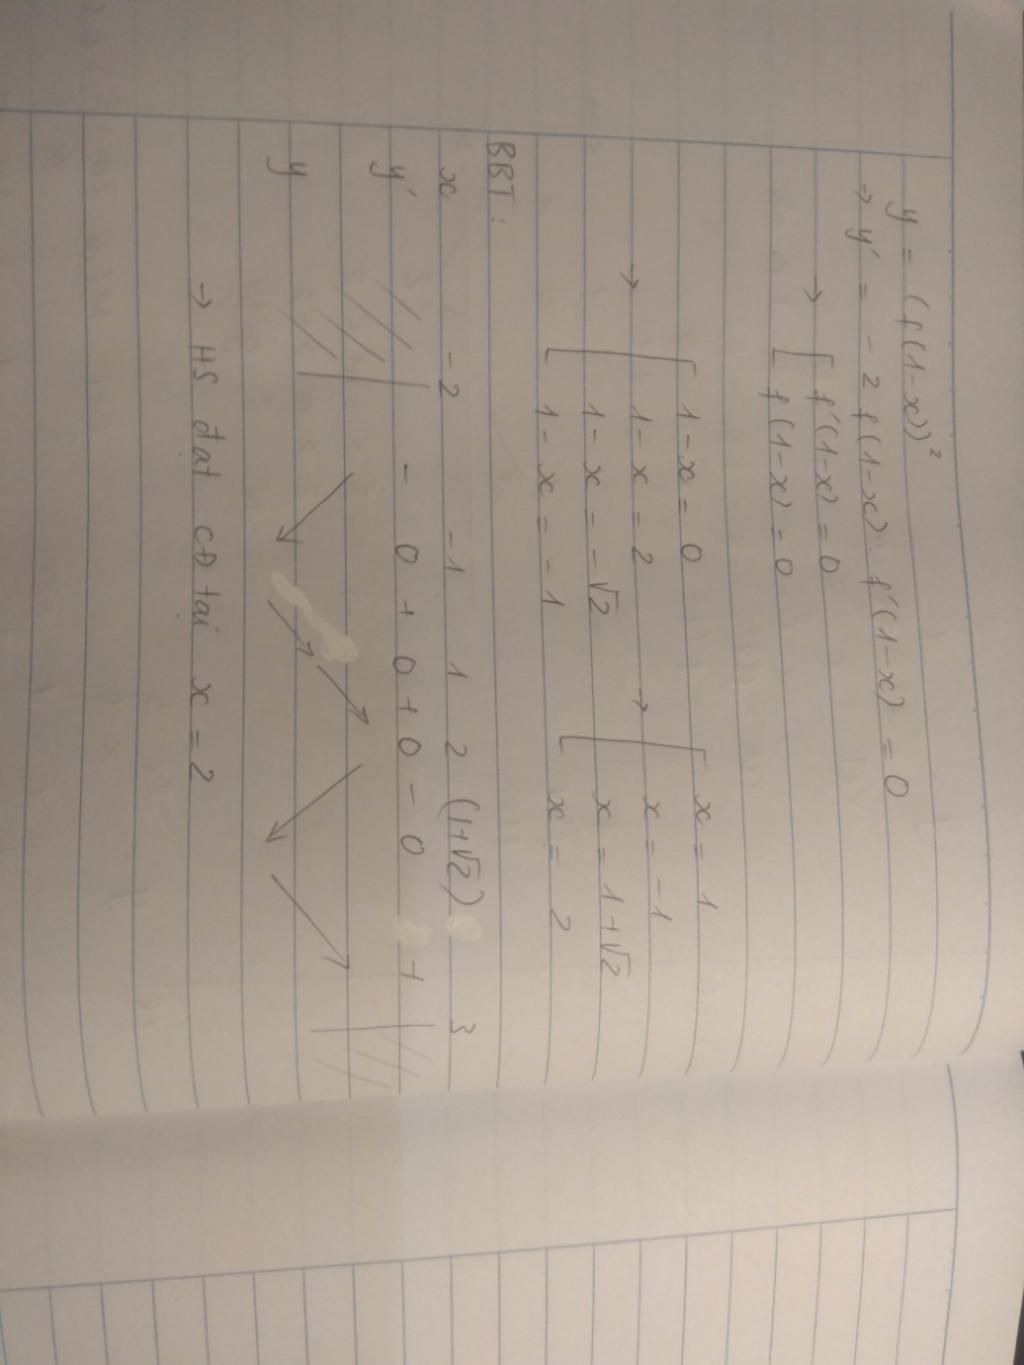 y = (f(1-x))²
→ y' = -2 f(1-x) . f'(1-x) = 0
→ [ f'(1-x) = 0
f(1-x) = 0
[ 1-x = 0 [ x = 1
→ 1-x = 2 → x = -1
1-x = -√2 x = 1+√2
1-x = -1 x = 2
BBT:
x -2 -1 1 2 (1+√2) 3
y' - 0 + 0 + 0 - 0 +
y
→ HS đạt CĐ tại x = 2